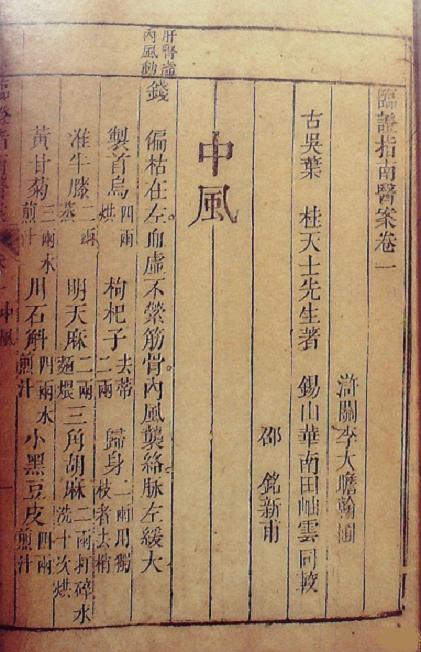 臨證指南醫案卷一
滸關李大瞻翰圃
古吳葉 桂天士先生著 錫山華南田岫雲同較
邵 銘新甫
中風
肝腎虛
內風動
錢 偏枯在左。血虛不縈筋骨。內風襲絡。脈左緩大
製首烏四兩烘 枸杞子去蒂二兩 歸身二兩用獨枝者去梢
淮牛膝二兩蒸 明天麻二兩麵煨 三角胡麻二兩打碎水洗十次烘
黃甘菊三兩水煎汁 川石斛四兩水煎汁 小黑豆皮四兩煎汁